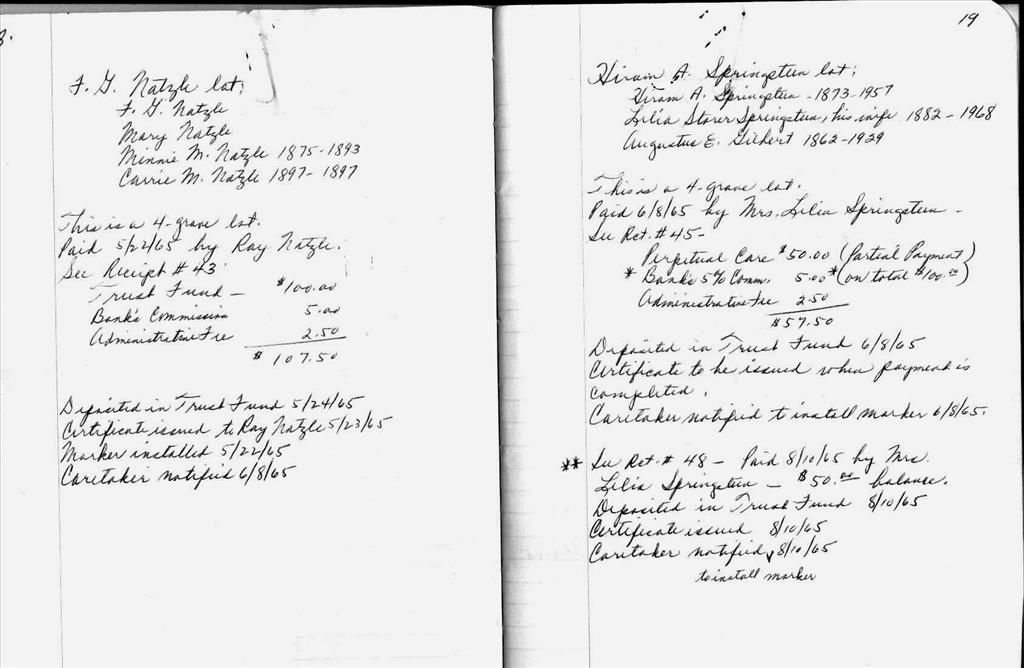 8.
F. G. Natzle lot:
F. G. Natzle
Mary Natzle
Minnie M. Natzle 1875-1893
Carrie M. Natzle 1897-1897
This is a 4-grave lot.
Paid 5/22/65 by Ray Natzle.
See Receipt # 43
Trust Fund — $100.00
Bank's Commission 5.00
Administrative Fee 2.50
$ 107.50
Deposited in Trust Fund 5/24/65
Certificate issued to Ray Natzle 5/23/65
Marker installed 5/22/65
Caretaker notified 6/8/65
19
Hiram A. Springsteen lot:
Hiram A. Springsteen - 1873-1957
Lilia Storer Springsteen, his wife 1882-1968
Augustus E. Gilbert 1862-1929
This is a 4-grave lot.
Paid 6/8/65 by Mrs. Lilia Springsteen -
See Rct. # 45 -
Perpetual Care $50.00 (Partial Payment)
* Bank's 5% Comm. 5.00 * (on total $100.00)
Administrative Fee 2.50
$57.50
Deposited in Trust Fund 6/8/65
Certificate to be issued when payment is
completed.
Caretaker notified to install marker 6/8/65.
** See Rct. # 48 - Paid 8/10/65 by Mrs.
Lilia Springsteen - $50.00 balance.
Deposited in Trust Fund 8/10/65
Certificate issued 8/10/65
Caretaker notified 8/10/65
to install marker